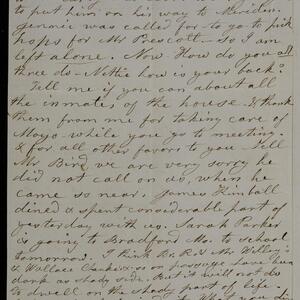 to put him on his way to Meriden.
Jennie was called for to go to pick
hops for Mr Prescott - So I am
left alone. Now How do you all
three do - Nettie how is your back?
Tell me if you can about all
the inmates of the house - & thank
them from me for taking care of
Mayo - while you go to meeting.
& for all other favors to you - Tell
Mr Bird, we are very sorry he
did not call on us, when he
came so near. James Kimball
dined & spent considerable part of
yesterday with us. Sarah Parker
is going to Bradford Ms. to school
tomorrow. I think Dr. R. & Mr
& Wallace
dark as shady side. But it will not do
to dwell on the shady part of life.